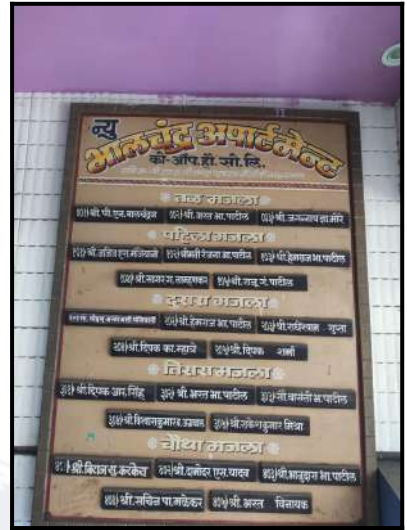 न्यु
भालचंद्र अपार्टमेन्ट
को-ऑप.हौ.सो.लि.
तळ मजला
००१) श्री.पी.एन.बालचंद्रन ००२) श्री.भरत भा.पाटील ००३) श्री.जगन्नाथ ज्ञा.मोरे
पहिला मजला
१०२) श्रीमती रंजना भा.पाटील १०३) श्री.हेमराज भा.पाटील
१०४) श्री.सागर ग.ताम्हणकर १०५) श्री.राजू गं.पाटील
दुसरा मजला
२०२) श्री.हेमराज भा.पाटील २०३) श्री.राधेश्याम गुप्ता
२०४) श्री.दिपक का.म्हात्रे २०५) श्री.दिपक शर्मा
तिसरा मजला
३०१) श्री.दिपक आर.सिंह ३०२) श्री.भरत भा.पाटील ३०३) सौ.वासंती भ.पाटील
३०४) श्री.विश्वासकुमार ३०५) श्री.राकेशकुमार मिश्रा
चौथा मजला
४०१) श्री.विराज सु.करकेरा ४०२) श्री.दामोदर एस.यादव ४०३) श्री.भानुदास भा.पाटील
४०४) श्री.सचिन पा.मळेकर ४०५) श्री.भरत विनायक